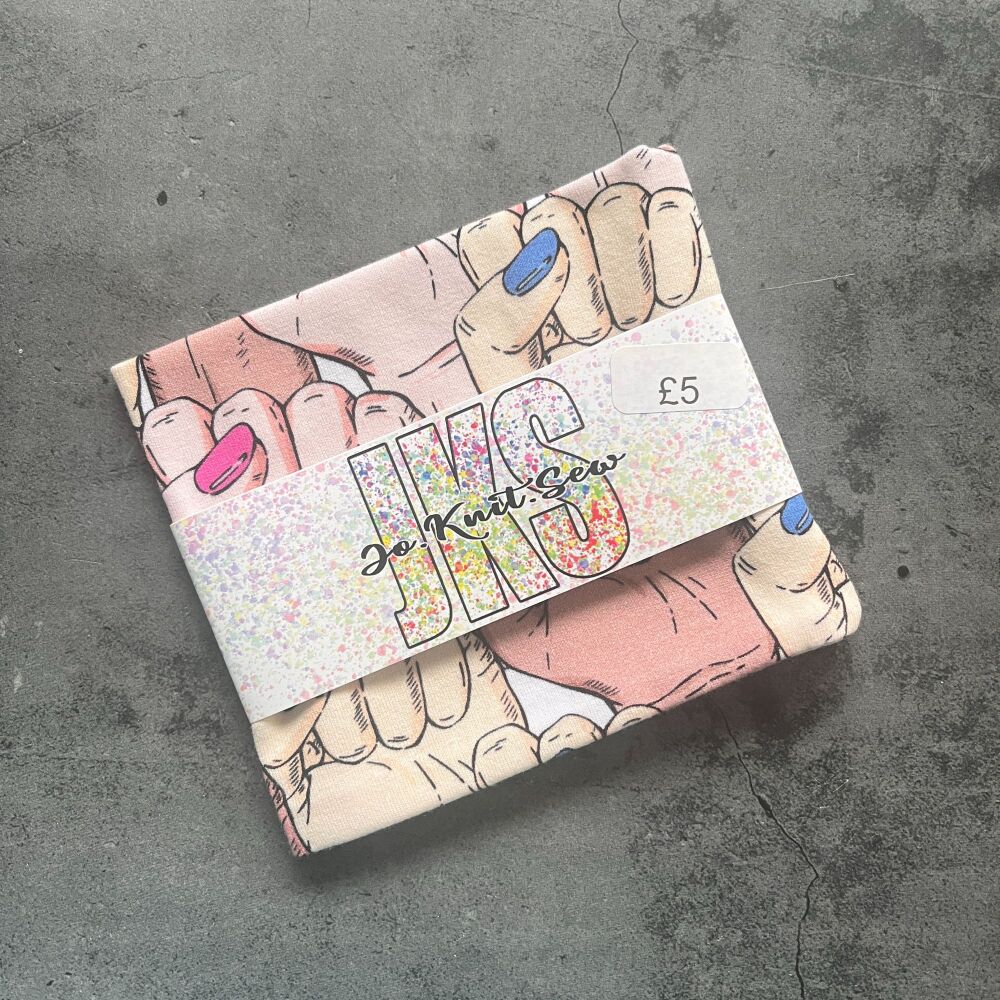 £5
JKS
Jo.Knit.Sew